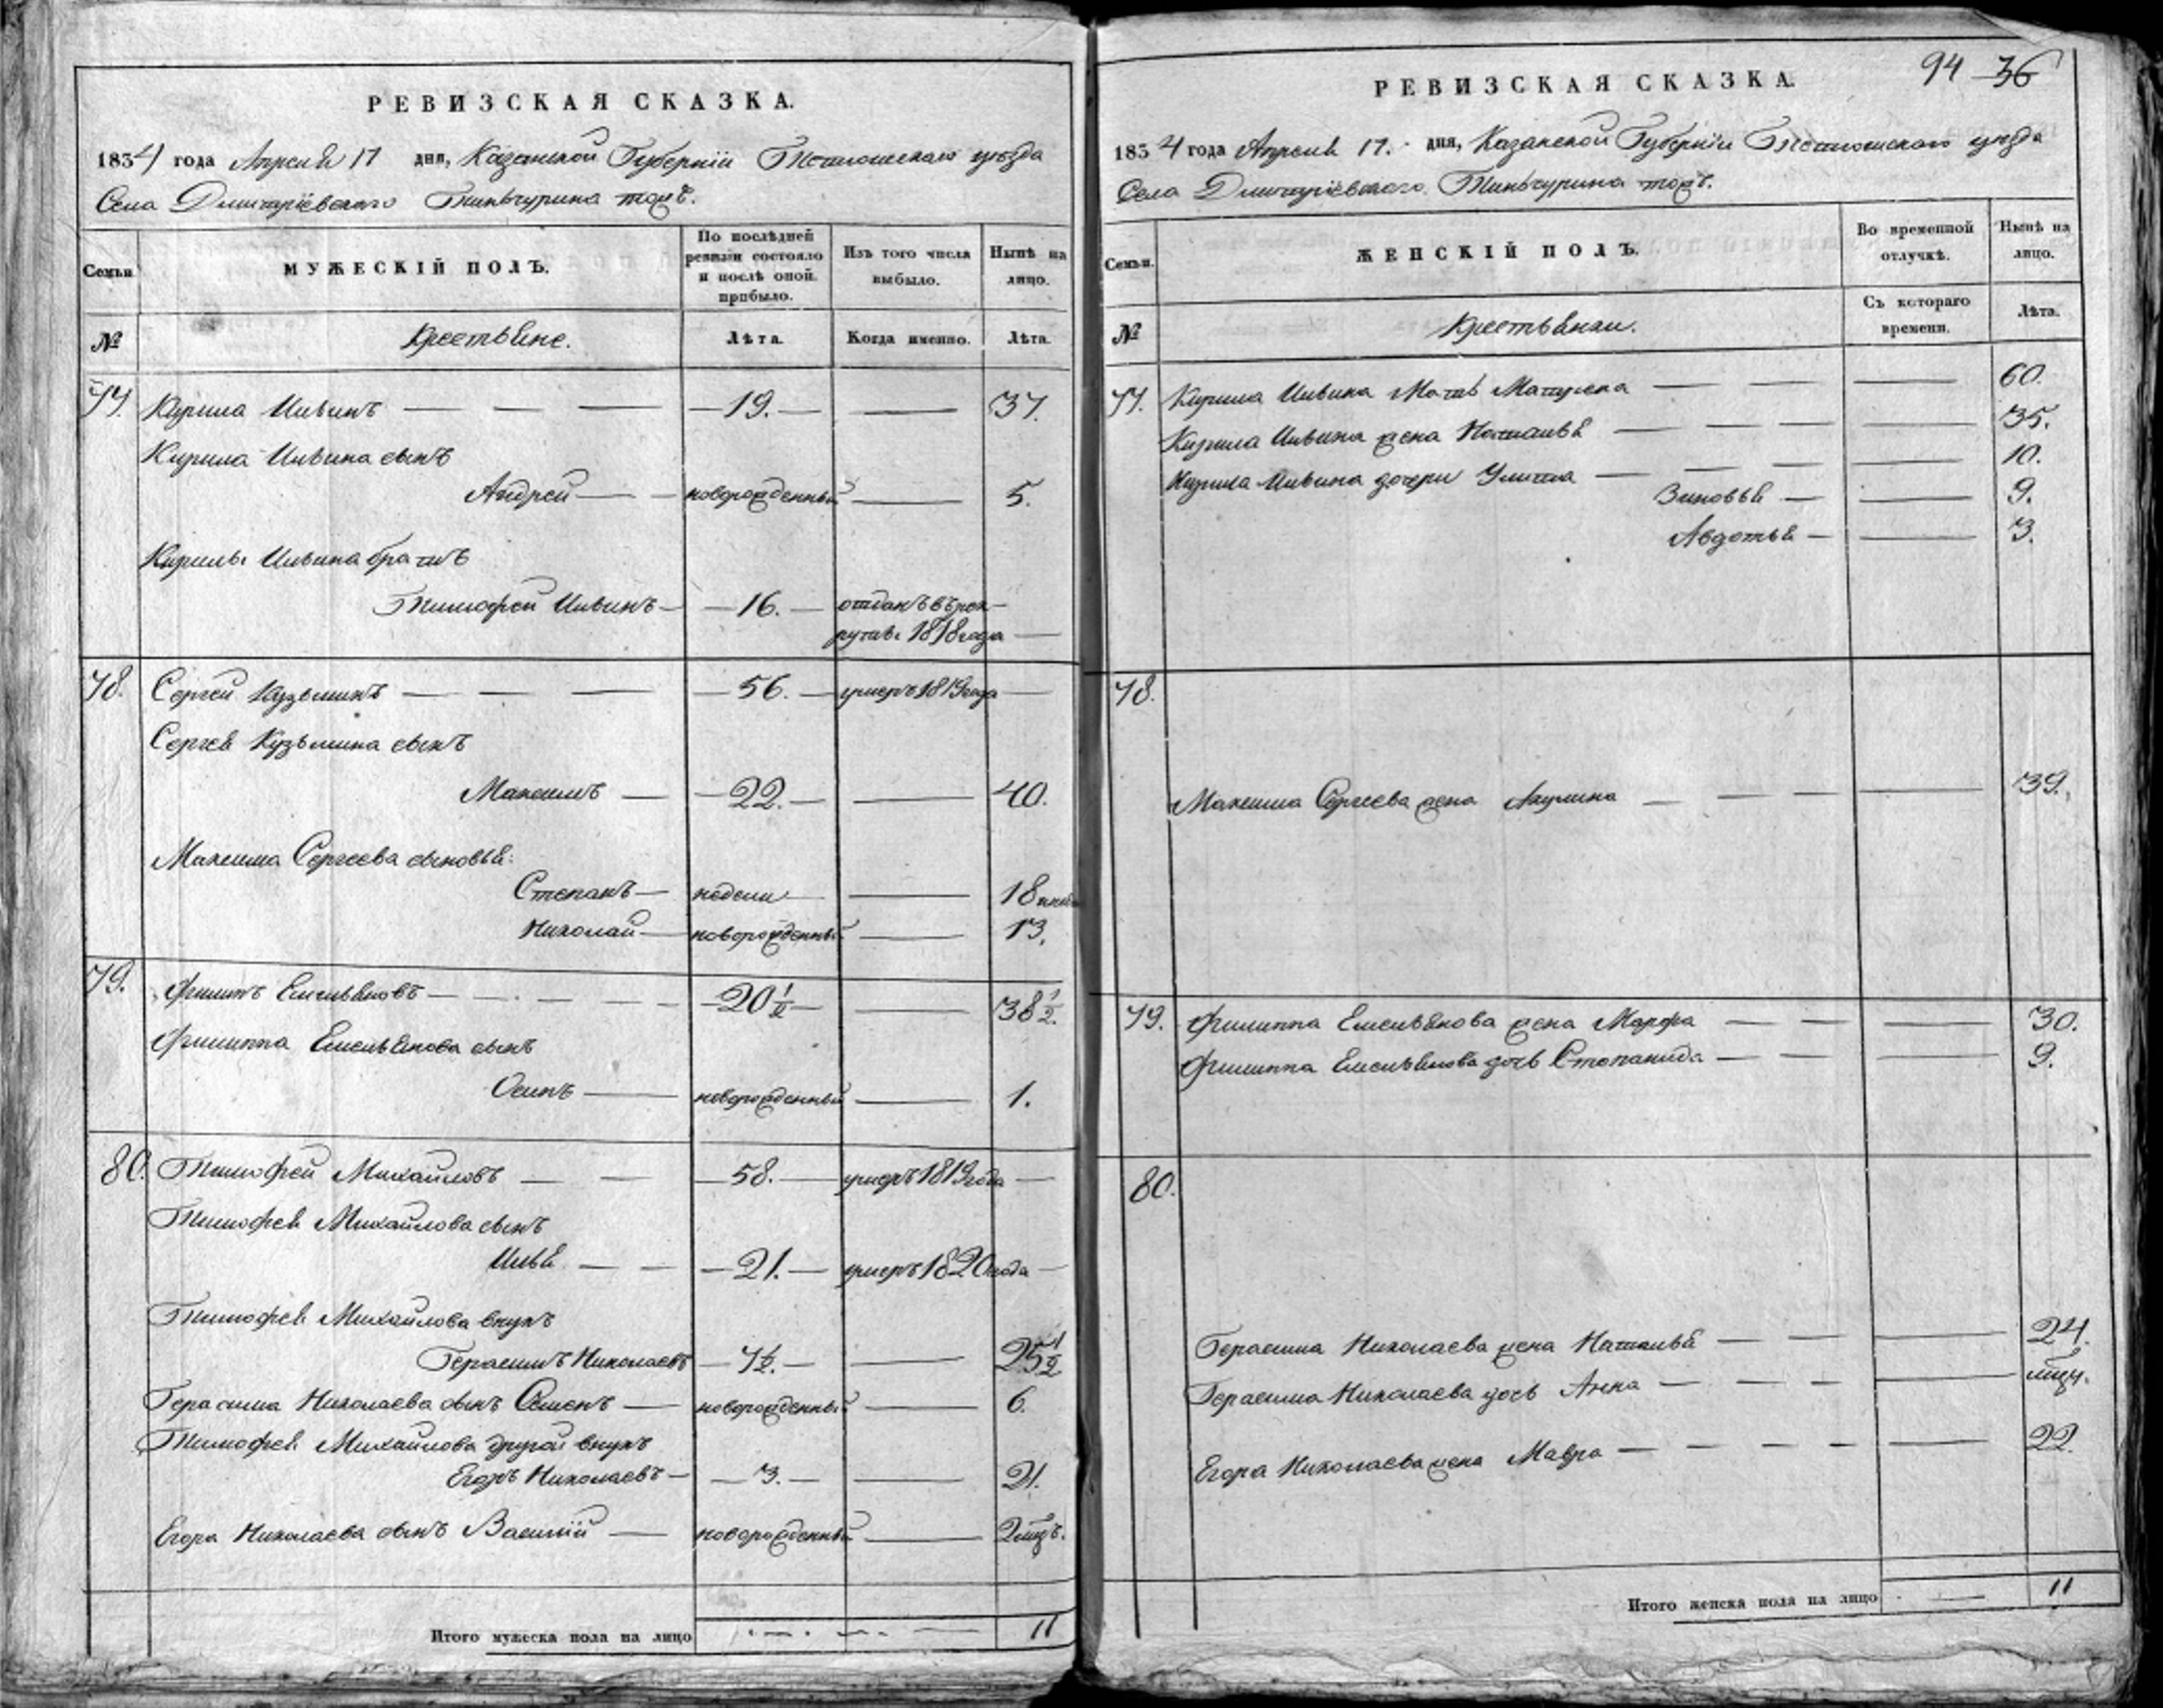 РЕВИЗСКАЯ СКАЗКА.
1834 года Апреля 17 дня, Казанской Губернiи Тетюшскаго уѣзда
Села Дмитрiевскаго Тиньчурина тожъ.
Семьи.
МУЖЕСКIЙ ПОЛЪ.
По послѣдней ревизiи состояло и послѣ оной прибыло.
Изъ того числа выбыло.
Нынѣ на лицо.
№
Крестьяне.
Лѣта.
Когда именно.
Лѣта.
77. Кирила Ильинъ — 19. — 37.
Кирила Ильина сынъ
Андрей — новорожденный — 5.
Кирилы Ильина братъ
Тимофей Ильинъ — 16. — отданъ въ рек-
руты 1818 года —
78. Сергей Кузьминъ — 56. — умеръ 1819 года —
Сергея Кузьмина сынъ
Максимъ — 22. — 40.
Максима Сергеева сыновья:
Степанъ — недели — 18
Николай — новорожденный — 13.
79. Филипъ Емельяновъ — 20 1/2 — 38 1/2.
Филиппа Емельянова сынъ
Осипъ — новорожденный — 1.
80. Тимофей Михайловъ — 58. — умеръ 1819 года —
Тимофея Михайлова сынъ
Илья — 21. — умеръ 1820 года —
Тимофея Михайлова внукъ
Герасимъ Николаевъ — 7 1/2. — 25 1/2
Герасима Николаева сынъ Семенъ — новорожденный — 6.
Тимофея Михайлова другой внукъ
Егоръ Николаевъ — 3. — 21.
Егора Николаева сынъ Василiй — новорожденный — 2 мцъ.
Итого мужеска пола на лицо 11
94 36
РЕВИЗСКАЯ СКАЗКА.
1834 года Апреля 17. дня, Казанской Губернiи Тетюшскаго уезда
Села Дмитрiевскаго Тиньчурина тожъ.
Семьи.
ЖЕНСКIЙ ПОЛЪ.
Во временной отлучкѣ.
Нынѣ на лицо.
№
Крестьянки.
Съ котораго времени.
Лѣта.
77. Кирила Ильина Мать Матрена — 60.
Кирила Ильина жена Наталья — 35.
Кирила Ильина дочери Улита — 10.
Зиновья — 9.
Авдотья — 3.
78.
Максима Сергеева жена Акулина — 39.
79. Филиппа Емельянова жена Марфа — 30.
Филиппа Емельянова дочь Степанида — 9.
80.
Герасима Николаева жена Наталья — 24.
Герасима Николаева дочь Анна —
Егора Николаева жена Мавра — 22.
Итого женска пола на лицо — 11